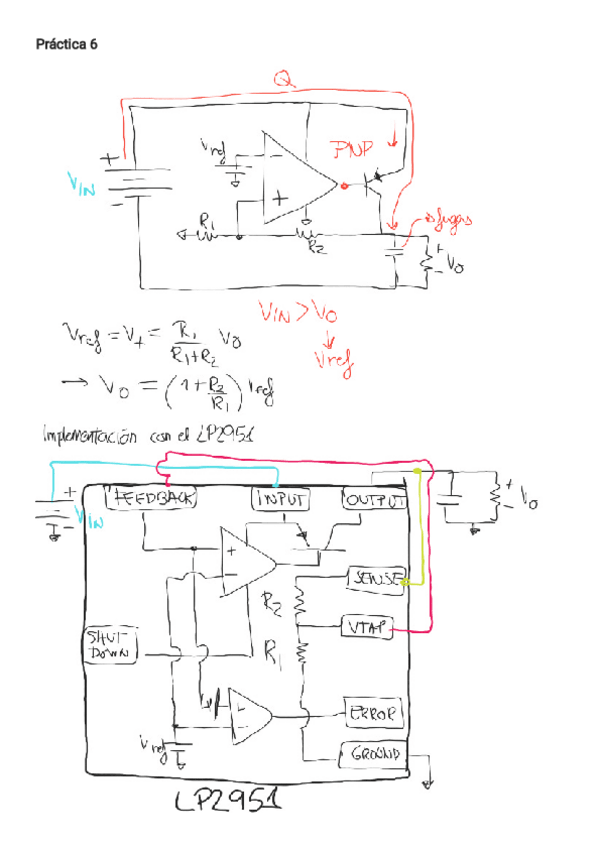 Práctica 6
Q
Vref
PNP
VIN
+
-
+
R1
R2
fugas
+
-
Vo
VIN > Vo
Vref
Vref = V+ = R1 / R1+R2 Vo
→ Vo = (1 + R2/R1) Vref
Implementación con el LP2951
+
-
VIN
FEEDBACK
INPUT
OUTPUT
+
-
Vo
+
-
SENSE
R2
VTAP
SHUT-
DOWN
R1
ERROR
Vref
GROUND
LP2951